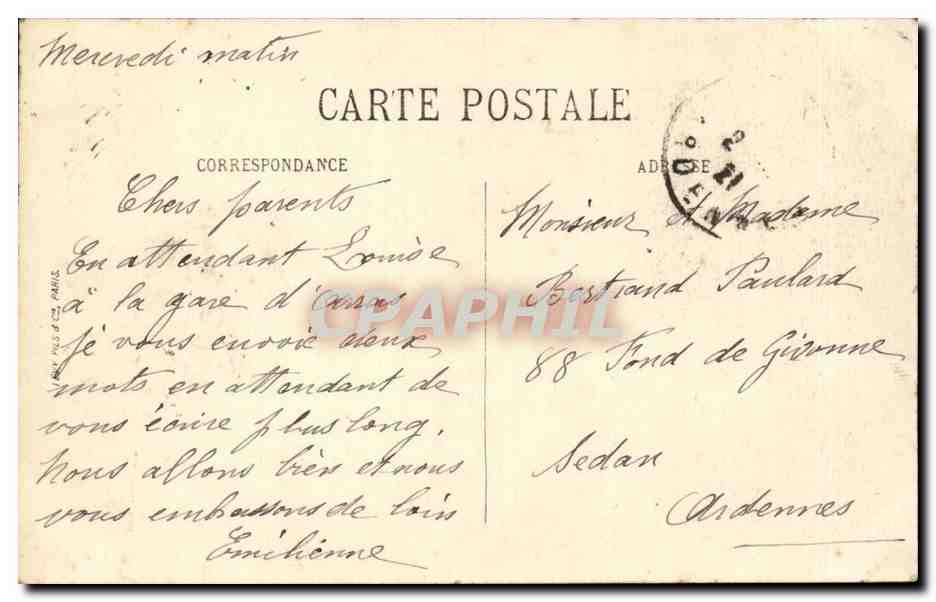 Mercredi matin
CARTE POSTALE
CORRESPONDANCE
ADRESSE
Chers parents
En attendant Louise
à la gare d'arras
je vous envoie deux
mots en attendant de
vous écrire plus long.
Nous allons bien et nous
vous embrassons de loin
Emilienne
Monsieur et Madame
Bertrand Paulard
88 Fond de Givonne
Sedan
Ardennes
FILS & Cie, PARIS.
CPAPHIL